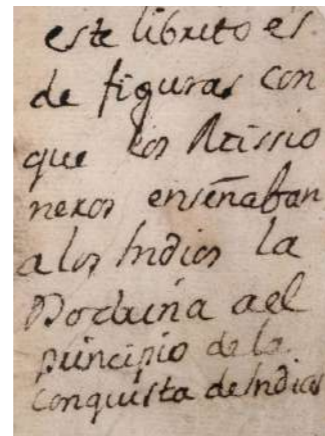 este libreto es
de figuras con
que los Missio
neros enseñaban
a los Indios la
Doctrina a el
principio de la
conquista de Indias